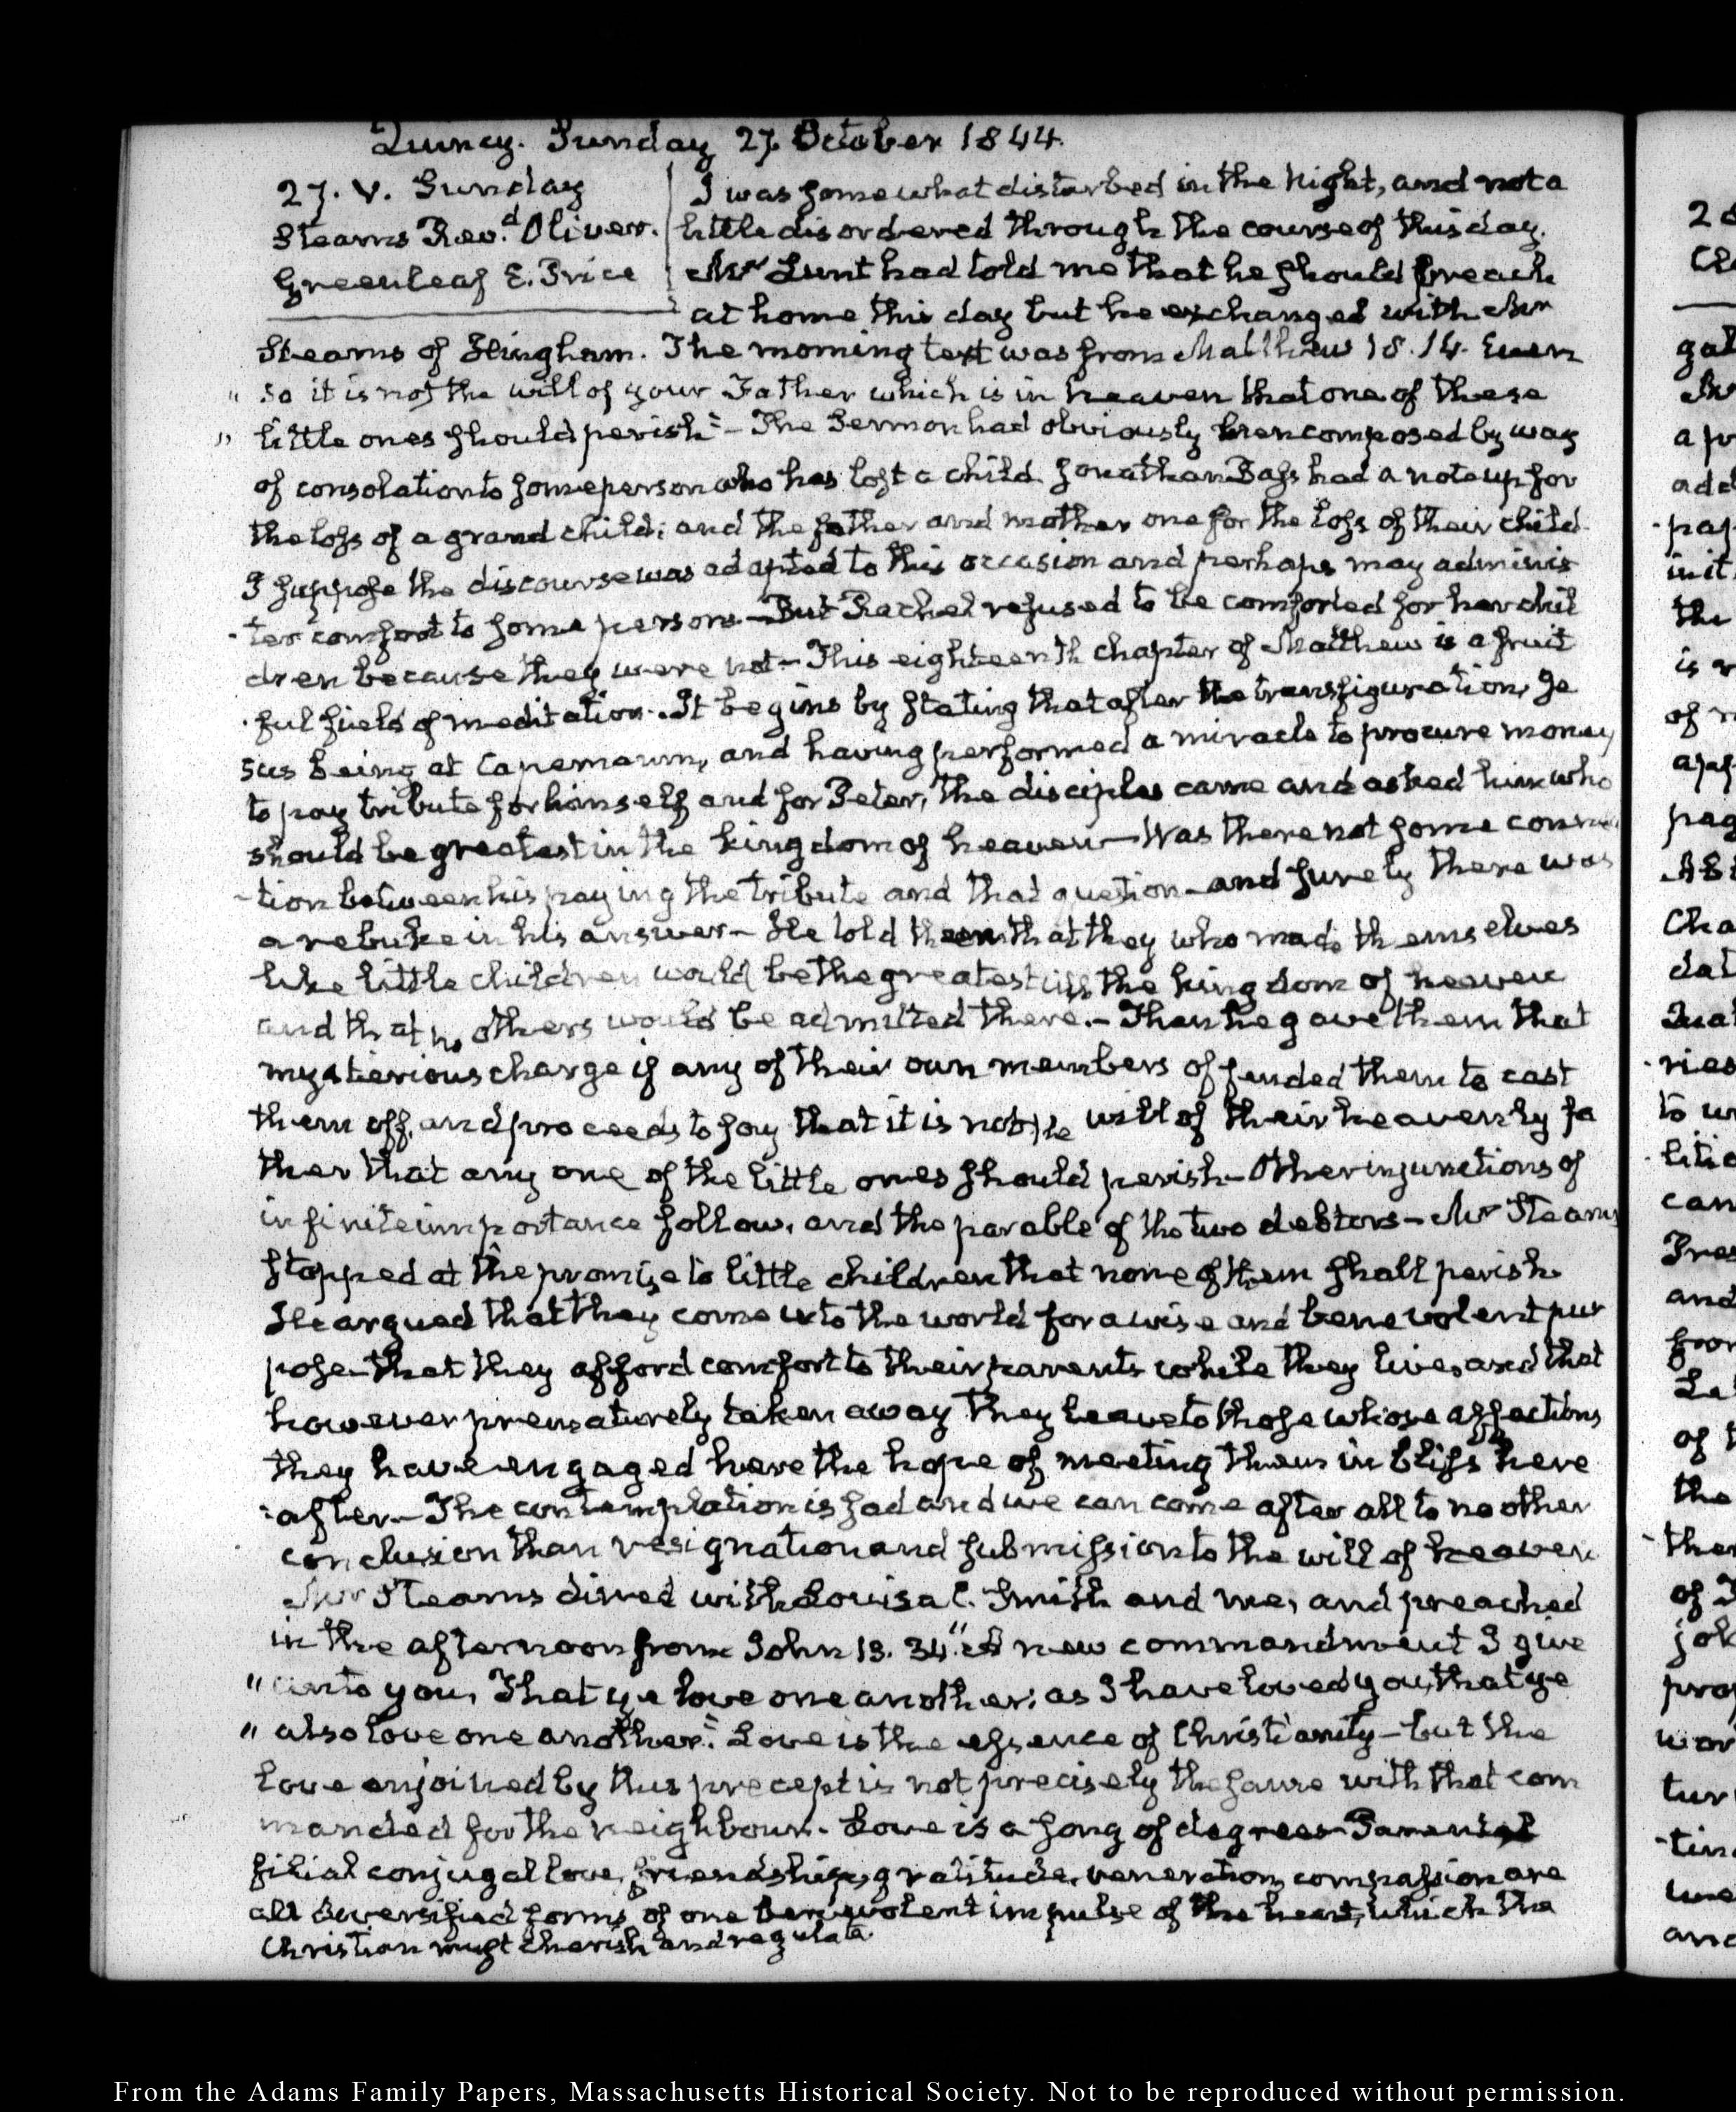 Quincy. Sunday 27. October 1844.
27. V. Sunday
Stearns Rev.d Oliver.
Greenleaf E. Price
I was somewhat disturbed in the night, and not a
little disordered through the course of this day.
Mr Lunt had told me that he should preach
at home this day but he exchanged with Mr
Stearns of Hingham. The morning text was from Matthew 18. 14. Even
" so it is not the will of your Father which is in heaven that one of these
" little ones should perish" – The Sermon had obviously been composed by way
of consolation to some person who has lost a child. Jonathan Bass had a note up for
the loss of a grand child; and the father and mother one for the loss of their child.
I suppose the discourse was adapted to this occasion and perhaps may adminis
-ter comfort to some persons – But Rachel refused to be comforted for her chil
dren because they were not – This eighteenth chapter of Matthew is a fruit
-ful field of meditation. It begins by stating that after the transfiguration, Je
sus being at Capernaum, and having performed a miracle to procure money
to pay tribute for himself and for Peter, the disciples came and asked him who
should be greatest in the kingdom of heaven – Was there not some connec
-tion between his paying the tribute and that question – and surely there was
a rebuke in his answer – He told them that they who made themselves
like little children would be the greatest in the kingdom of heaven
and that no others would be admitted there. – Then he gave them that
mysterious charge if any of their own members offended them to cast
them off, and proceeds to say that it is not the will of their heavenly fa
ther that any one of the little ones should perish – Other injunctions of
infinite importance follow, and the parable of the two debtors – Mr Stearns
stopped at the promise to little children that none of them shall perish
He argued that they come into the world for a wise and benevolent pur
pose – that they afford comfort to their parents while they live, and that
however prematurely taken away they leave to those whose affections
they have engaged here the hope of meeting them in bliss here
-after. – The contemplation is sad and we can come after all to no other
conclusion than resignation and submission to the will of heaven
Mr Stearns dined with Louisa C. Smith and me, and preached
in the afternoon from John 13. 34. "A new commandment I give
" unto you, That ye love one another; as I have loved you, that ye
" also love one another." Love is the essence of Christianity – but the
love enjoined by this precept is not precisely the same with that com
manded for the neighbour. Love is a song of degrees – Parental
filial conjugal love, friendship, gratitude, veneration, compassion are
all diversified forms of one benevolent impulse of the heart, which the
Christian must cherish and regulate.
From the Adams Family Papers, Massachusetts Historical Society. Not to be reproduced without permission.